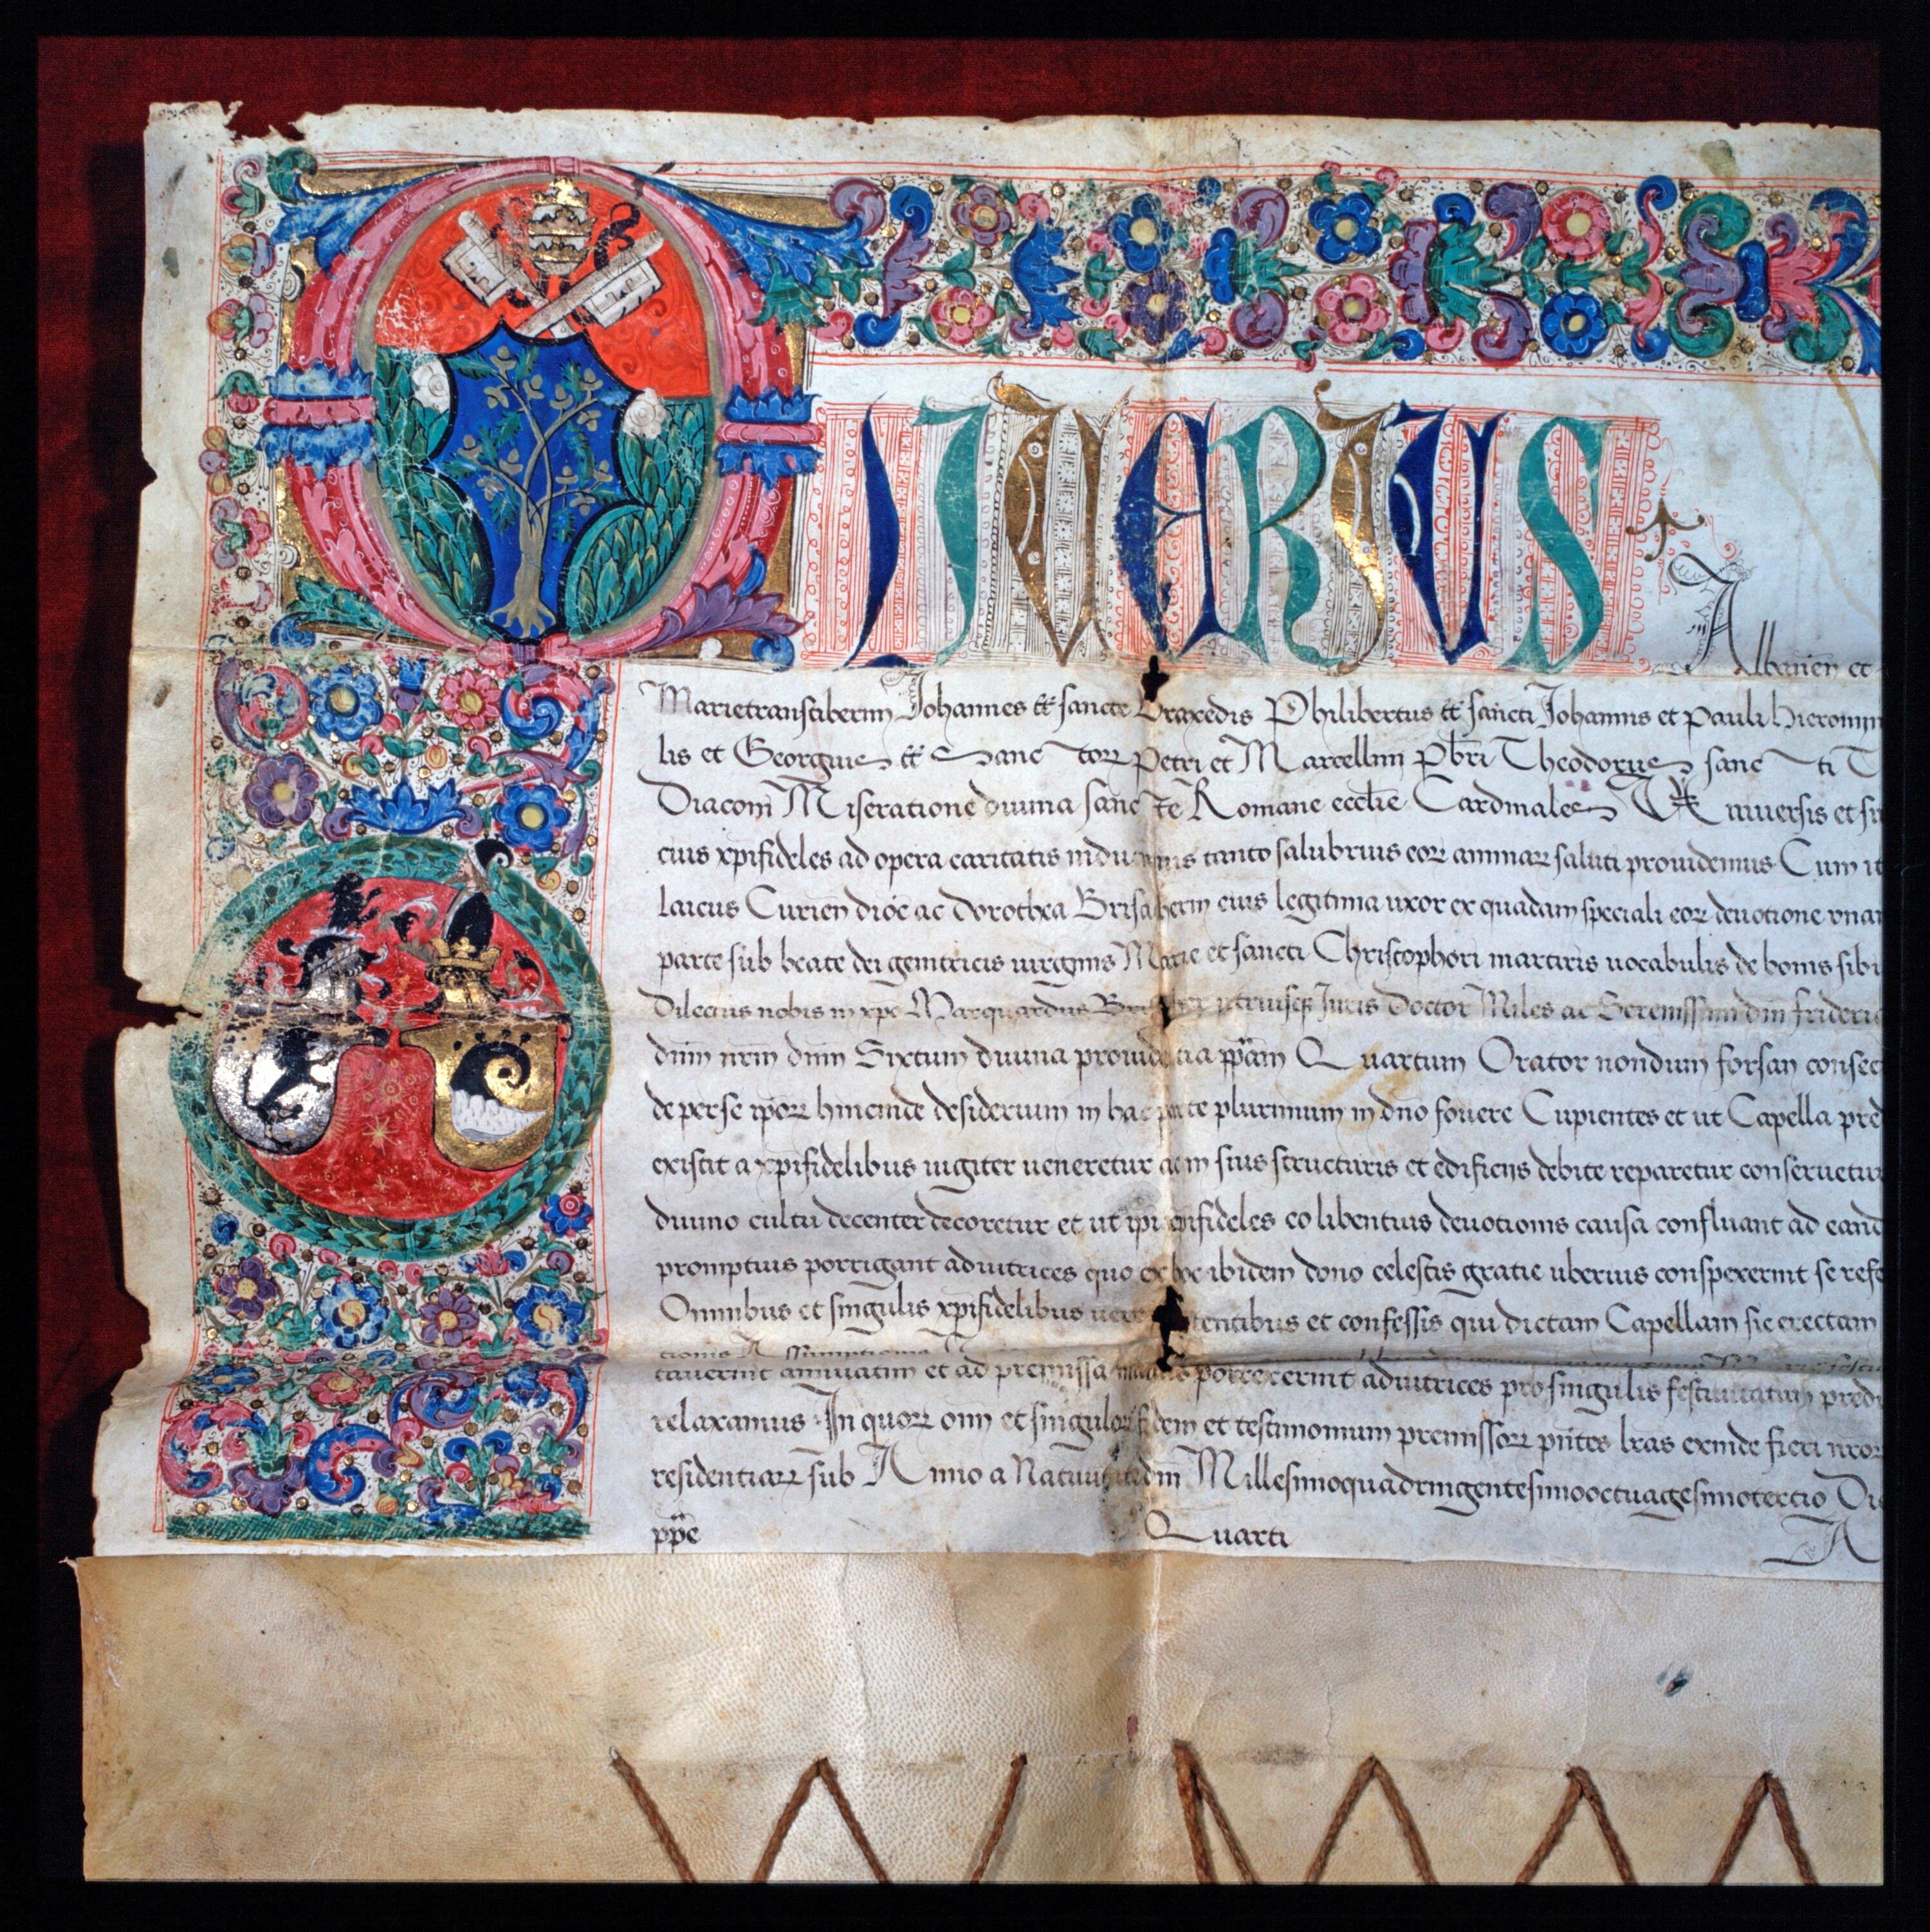 OLIUERIUS
Albanen et
Marietranstiberim Johannes tt sancte Praxedis Philibertus tt sancti Johannis et Pauli Hieronim
lis et Georgius tt Sanctorꝝ Petri et Marcellini pbri Theodorus sancti T
Diaconi Miseratione diuina sancte Romane ecclie Cardinales Vniuersis et si
cius xpifideles ad opera caritatis inducimus tanto salubrius eorꝝ animarꝝ saluti prouidemus Cum it
laicus Curien dioc ac Dorothea Brisacherin eius legitima uxor ex quadam speciali eorꝝ deuotione vnam
parte sub beate dei genitricis uirginis Marie et sancti Christophori martiris uocabulis de bonis sibi
Dilectus nobis in xpo Marquardus Brisacher utriusqꝫ Juris Doctor Miles ac Serenissimi dni friderici
dnm nrm dnm Sixtum diuina prouidentia ppam Quartum Orator nondum forsan consec
de per se ipsorꝝ hincinde desiderium in hac parte plurimum in dno fouere Cupientes et ut Capella pred
existit a xpifidelibus iugiter ueneretur ac in suis structuris et edificiis debite reparetur conseruetur
diuino cultu decenter decoretur et ut ipi xpifideles eo libentius deuotionis causa confluant ad eand
promptius porrigant adiutrices quo ex hoc ibidem dono celestis gratie uberius conspexerint se refe
Omnibus et singulis xpifidelibus uere penitentibus et confessis qui dictam Capellam sic erectam
tionis Assumptionis
tauerint annuatim et ad premissa manus porrexerint adiutrices pro singulis festiuitatum predi
relaxamus In quorꝝ omn et singulorꝝ fidem et testimonium premissorꝝ pntes lras exinde fieri nrorꝝ
residentiarꝝ sub Anno a Natiuitate dni Millesimoquadringentesimooctuagesimotertio Die
ppe Quarti A